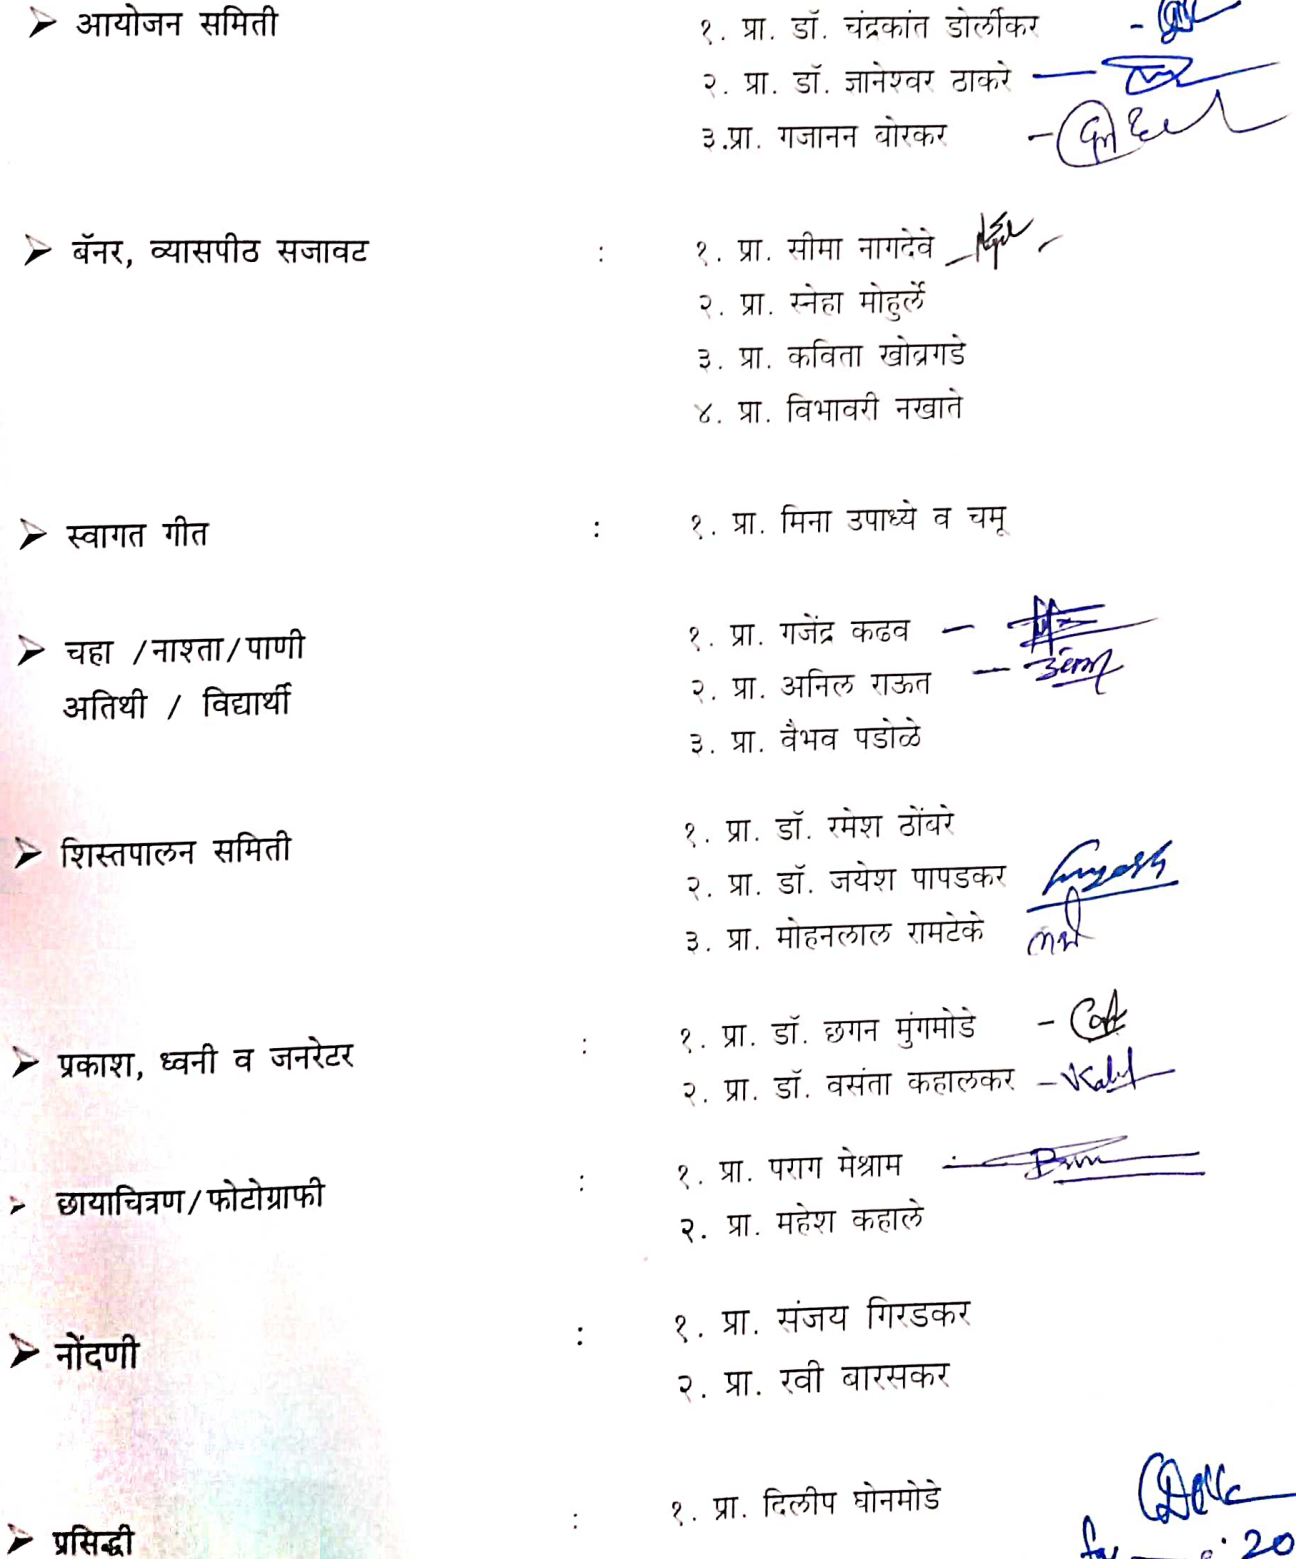 ➢ आयोजन समिती १. प्रा. डॉ. चंद्रकांत डोर्लीकर -
२. प्रा. डॉ. ज्ञानेश्वर ठाकरे —
३.प्रा. गजानन बोरकर -
➢ बॅनर, व्यासपीठ सजावट : १. प्रा. सीमा नागदेवे
२. प्रा. स्नेहा मोहुर्ले
३. प्रा. कविता खोब्रगडे
४. प्रा. विभावरी नखाते
➢ स्वागत गीत : १. प्रा. मिना उपाध्ये व चमू
➢ चहा /नाश्ता/पाणी १. प्रा. गजेंद्र कढव —
अतिथी / विद्यार्थी २. प्रा. अनिल राऊत —
३. प्रा. वैभव पडोळे
➢ शिस्तपालन समिती १. प्रा. डॉ. रमेश ठोंबरे
२. प्रा. डॉ. जयेश पापडकर
३. प्रा. मोहनलाल रामटेके
➢ प्रकाश, ध्वनी व जनरेटर : १. प्रा. डॉ. छगन मुंगमोडे -
२. प्रा. डॉ. वसंता कहालकर -
➢ छायाचित्रण/फोटोग्राफी : १. प्रा. पराग मेश्राम
२. प्रा. महेश कहाले
➢ नोंदणी : १. प्रा. संजय गिरडकर
२. प्रा. रवी बारसकर
➢ प्रसिद्धी : १. प्रा. दिलीप घोनमोडे
20